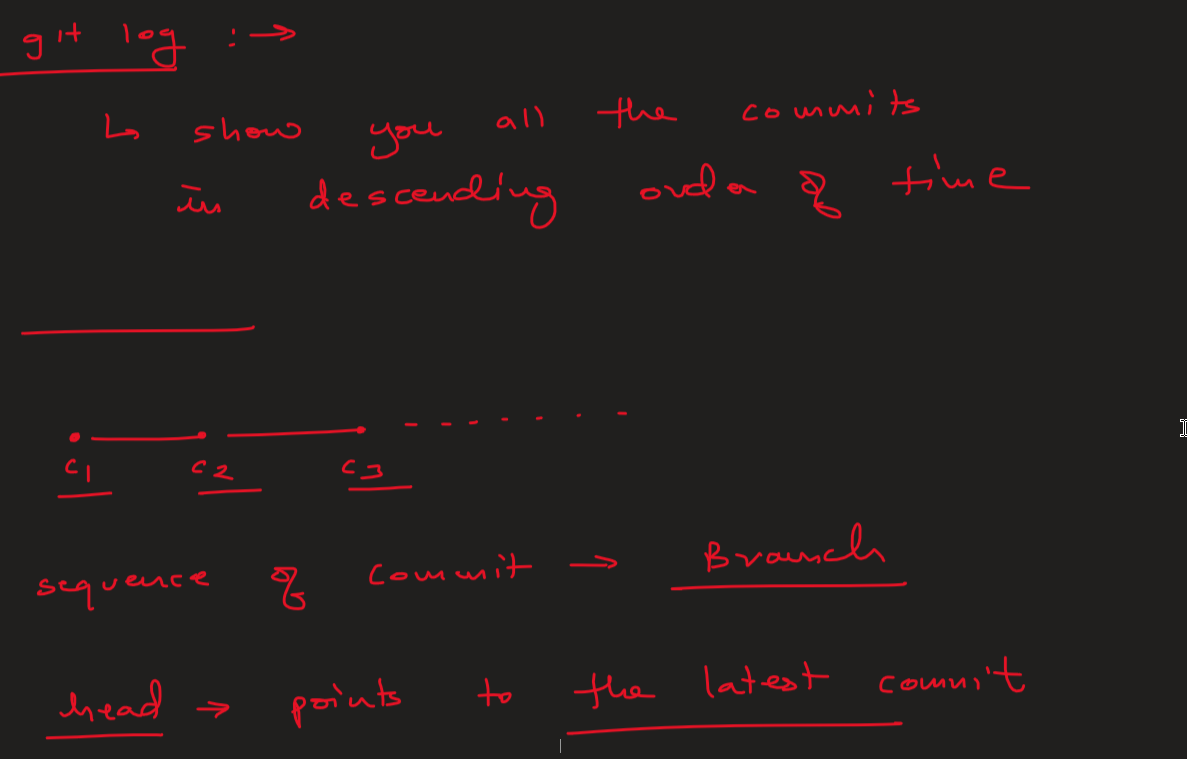 git log :→
↳ show you all the commits
in descending order of time
c1 c2 c3
sequence of commit → Branch
head → points to the latest commit